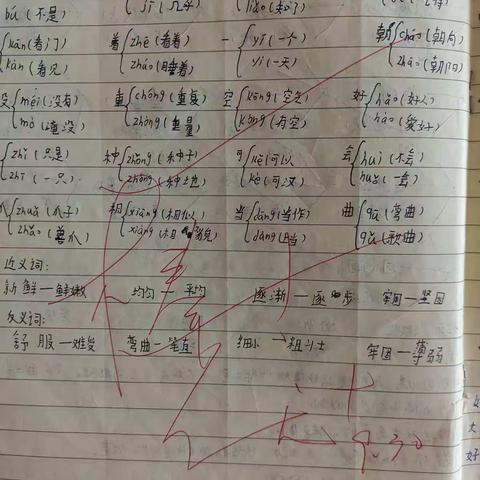 bú(不是)
kān(看门) 着 zhē(看着) 一 yí(一个) 朝 cháo(朝向)
kàn(看见) zháo(睡着) yì(一天) zhāo(朝阳)
没 méi(没有) 重 chóng(重复) 空 kōng(空气) 好 hǎo(好人)
mò(淹没) zhòng(重量) kòng(有空) hào(爱好)
zhǐ(只是) 种 zhǒng(种子) 可 kě(可以) 会 huì(不会)
zhī(一只) zhòng(种地) kè(可汗) huǐ(一会)
爪 zhuǎ(爪子) 相 xiāng(相似) 当 dāng(当作) 曲 qū(弯曲)
zhǎo xiàng(相貌) dàng qǔ(歌曲)
近义词:
新鲜一鲜嫩 均匀一平均 逐渐一逐步 牢固一坚固
反义词:
舒服一难受 弯曲一笔直 细小一粗壮 牢固一薄弱
9.30